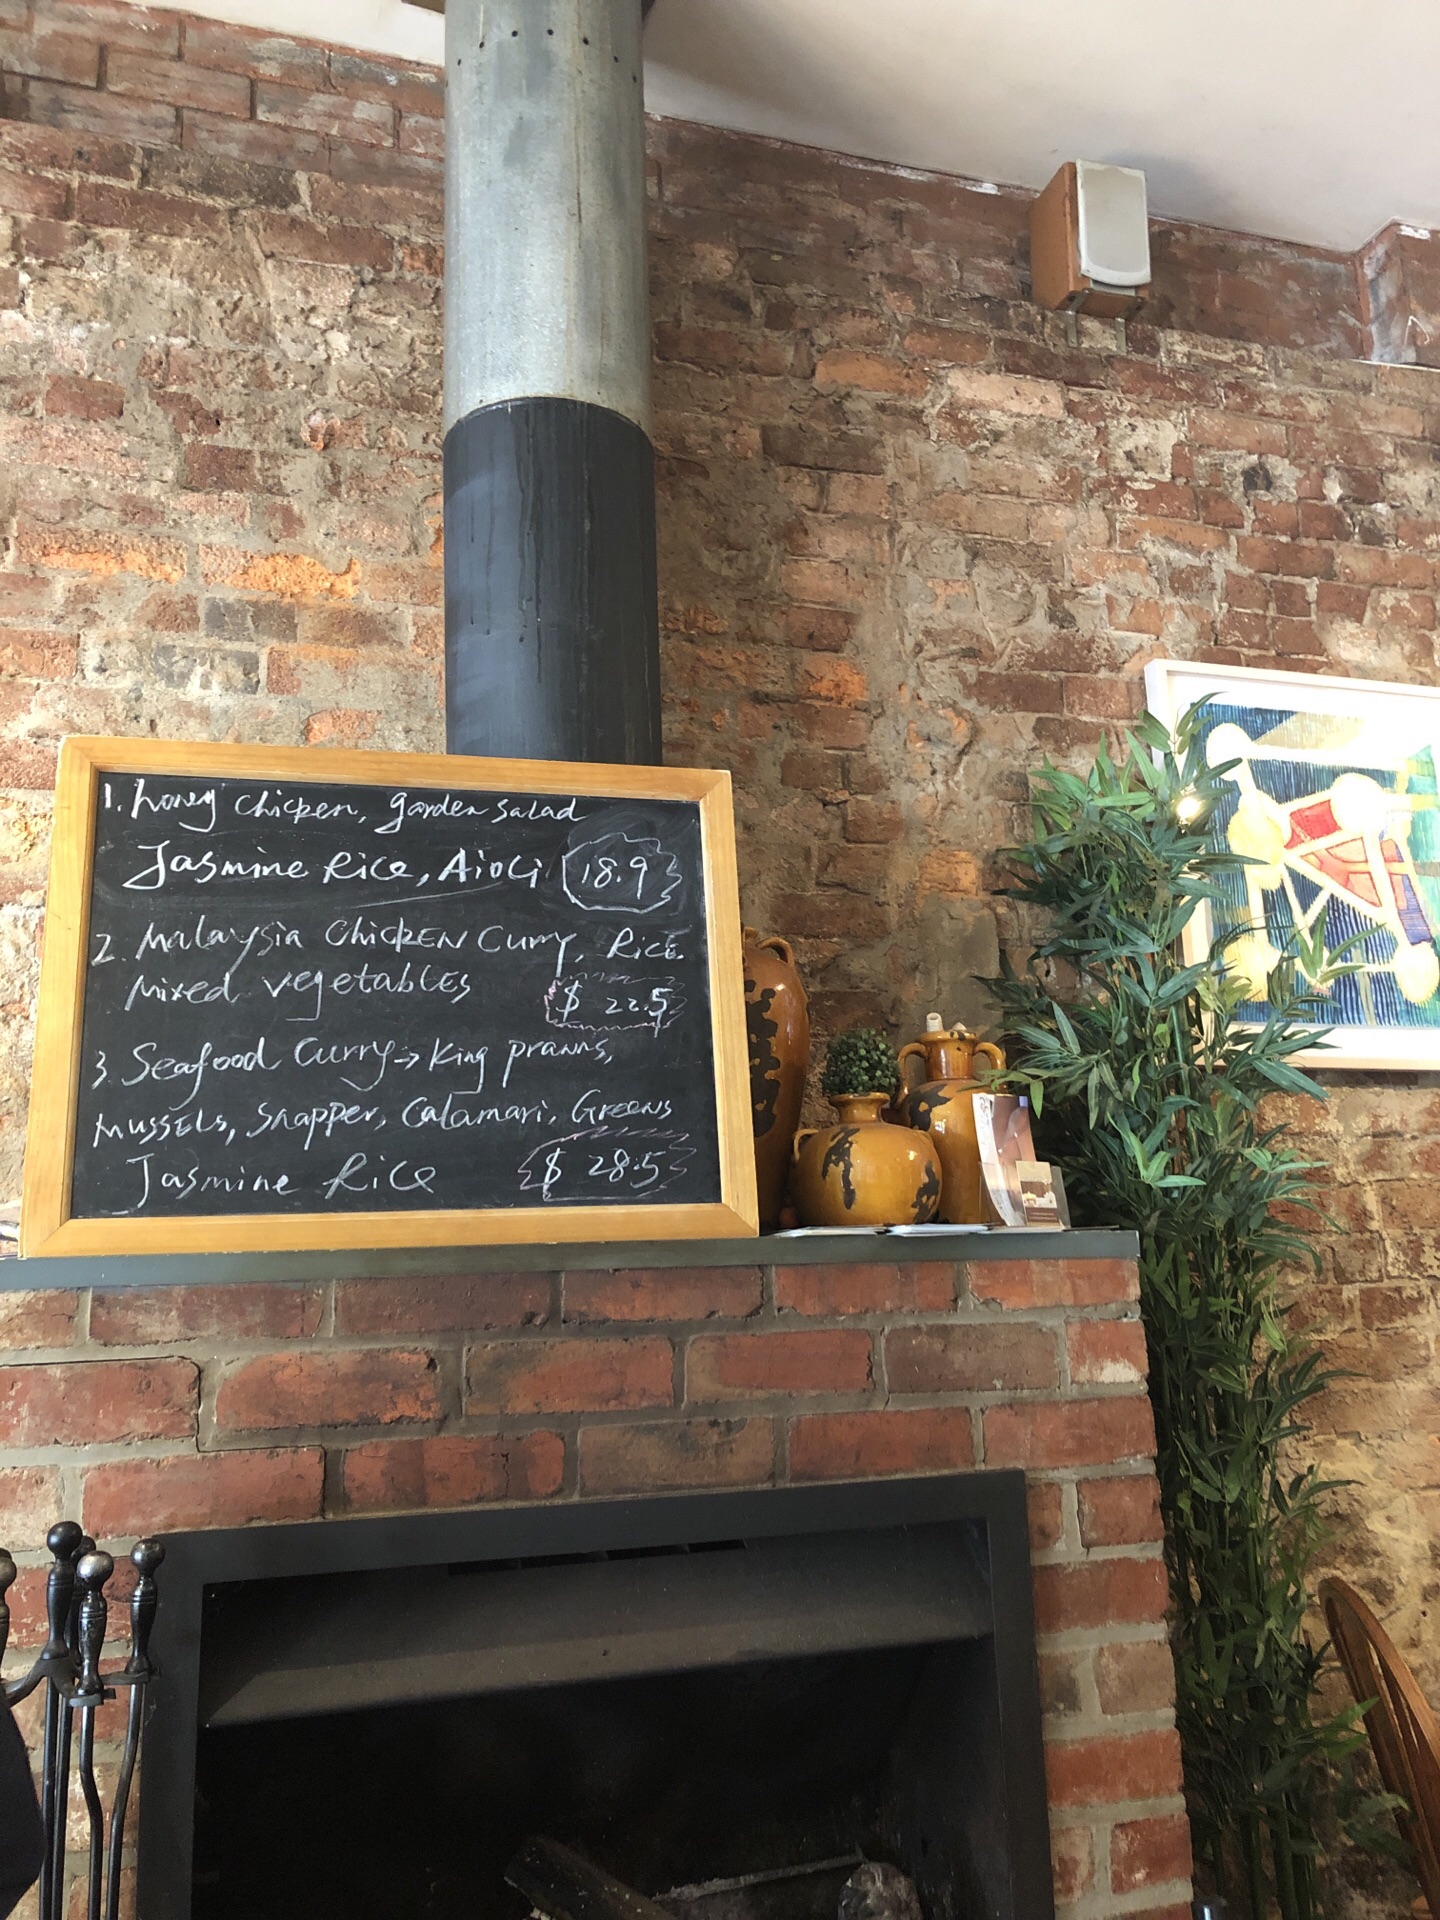 1. honey chicken, garden salad
Jasmine Rice, Aioli 18.9
2. Malaysia CHICKEN Curry, Rice.
Mixed vegetables $ 22.5
3. Seafood Curry → King prawns,
MUSSELS, Snapper, Calamari, Greens
Jasmine Rice $ 28.5